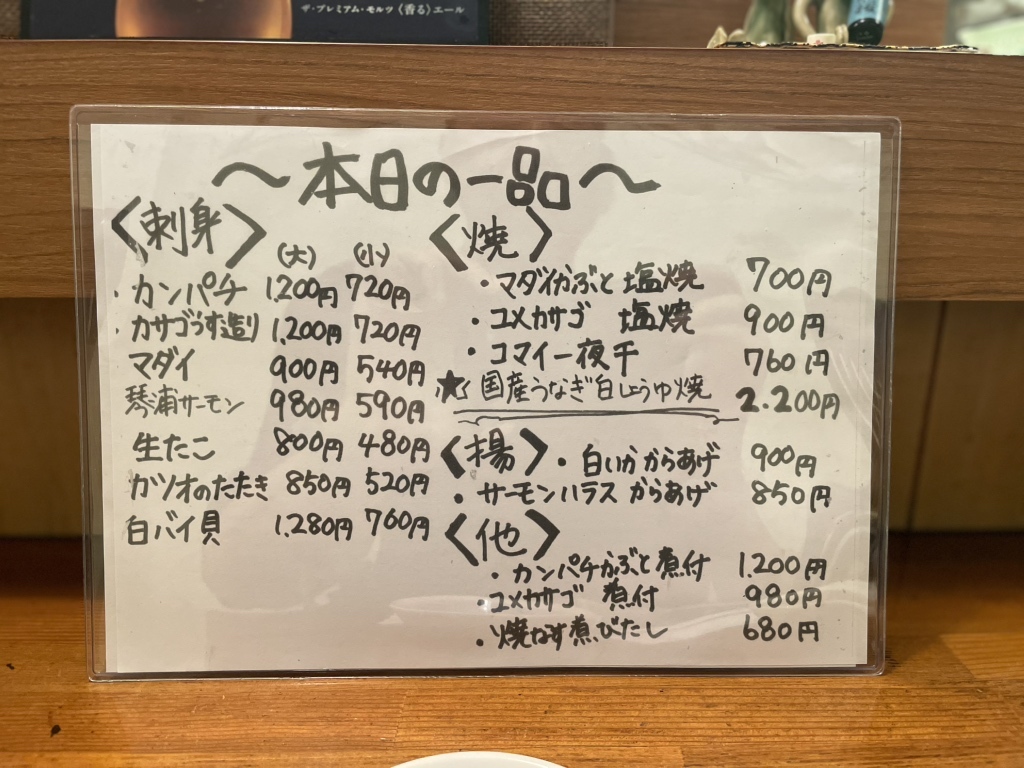 ザ・プレミアム・モルツ〈香る〉エール
～本日の一品～
〈刺身〉
(大) (小)
・カンパチ 1.200円 720円
・カサゴうす造り 1.200円 720円
マダイ 900円 540円
琴浦サーモン 980円 590円
生たこ 800円 480円
カツオのたたき 850円 520円
白バイ貝 1.280円 760円
〈焼〉
・マダイかぶと 塩焼 700円
・ユメカサゴ 塩焼 900円
・コマイ一夜干 760円
★国産うなぎ白しょうゆ焼 2.200円
〈揚〉・白いか からあげ 900円
・サーモンハラス からあげ 850円
〈他〉
・カンパチかぶと煮付 1.200円
・ユメカサゴ 煮付 980円
・焼なす煮びたし 680円